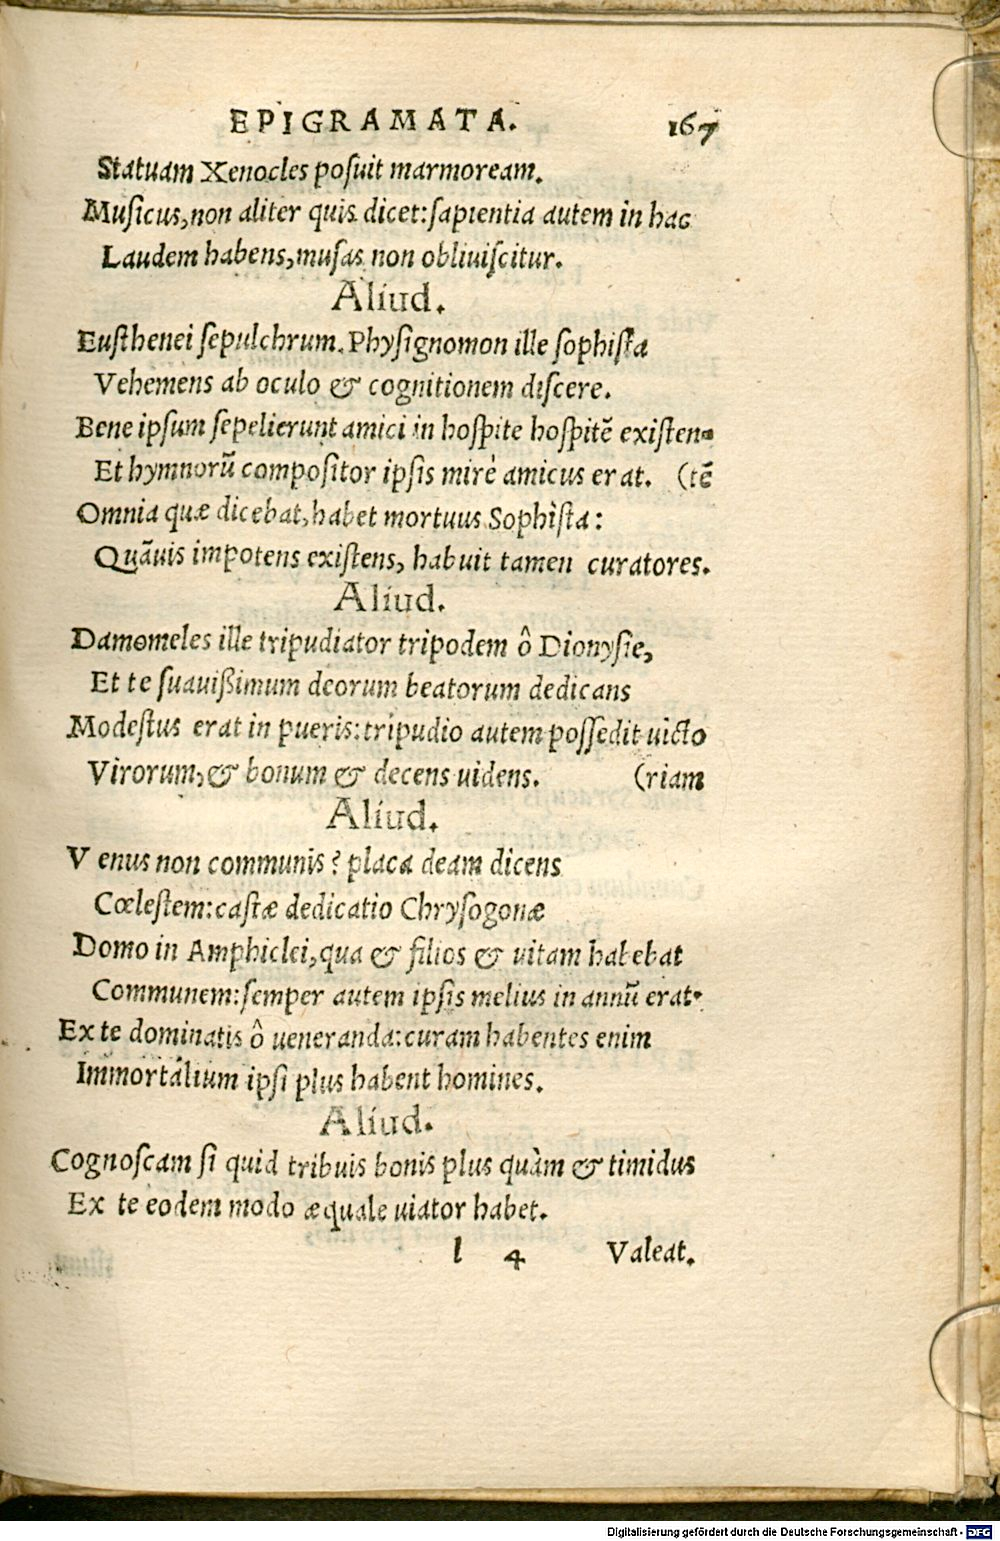 EPIGRAMATA. 167
Statuam Xenocles posuit marmoream.
Musicus, non aliter quis dicet: sapientia autem in hac
Laudem habens, musas non obliuiscitur.
Aliud.
Eusthenei sepulchrum. Physignomon ille sophista
Vehemens ab oculo & cognitionem discere.
Bene ipsum sepelierunt amici in hospite hospitē existen-
Et hymnorū compositor ipsis mirè amicus erat. (tē
Omnia quæ dicebat, habet mortuus Sophista:
Quāuis impotens existens, habuit tamen curatores.
Aliud.
Damomeles ille tripudiator tripodem ô Dionysie,
Et te suauißimum deorum beatorum dedicans
Modestus erat in pueris: tripudio autem possedit uicto
Virorum, & bonum & decens uidens. (riam
Aliud.
V enus non communis? placa deam dicens
Cœlestem: castæ dedicatio Chrysogonæ
Domo in Amphiclei, qua & filios & uitam habebat
Communem: semper autem ipsis melius in annū erat.
Ex te dominatis ô ueneranda: curam habentes enim
Immortalium ipsi plus habent homines.
Aliud.
Cognoscam si quid tribuis bonis plus quàm & timidus
Ex te eodem modo æquale uiator habet.
l 4 Valeat.
Digitalisierung gefördert durch die Deutsche Forschungsgemeinschaft - DFG